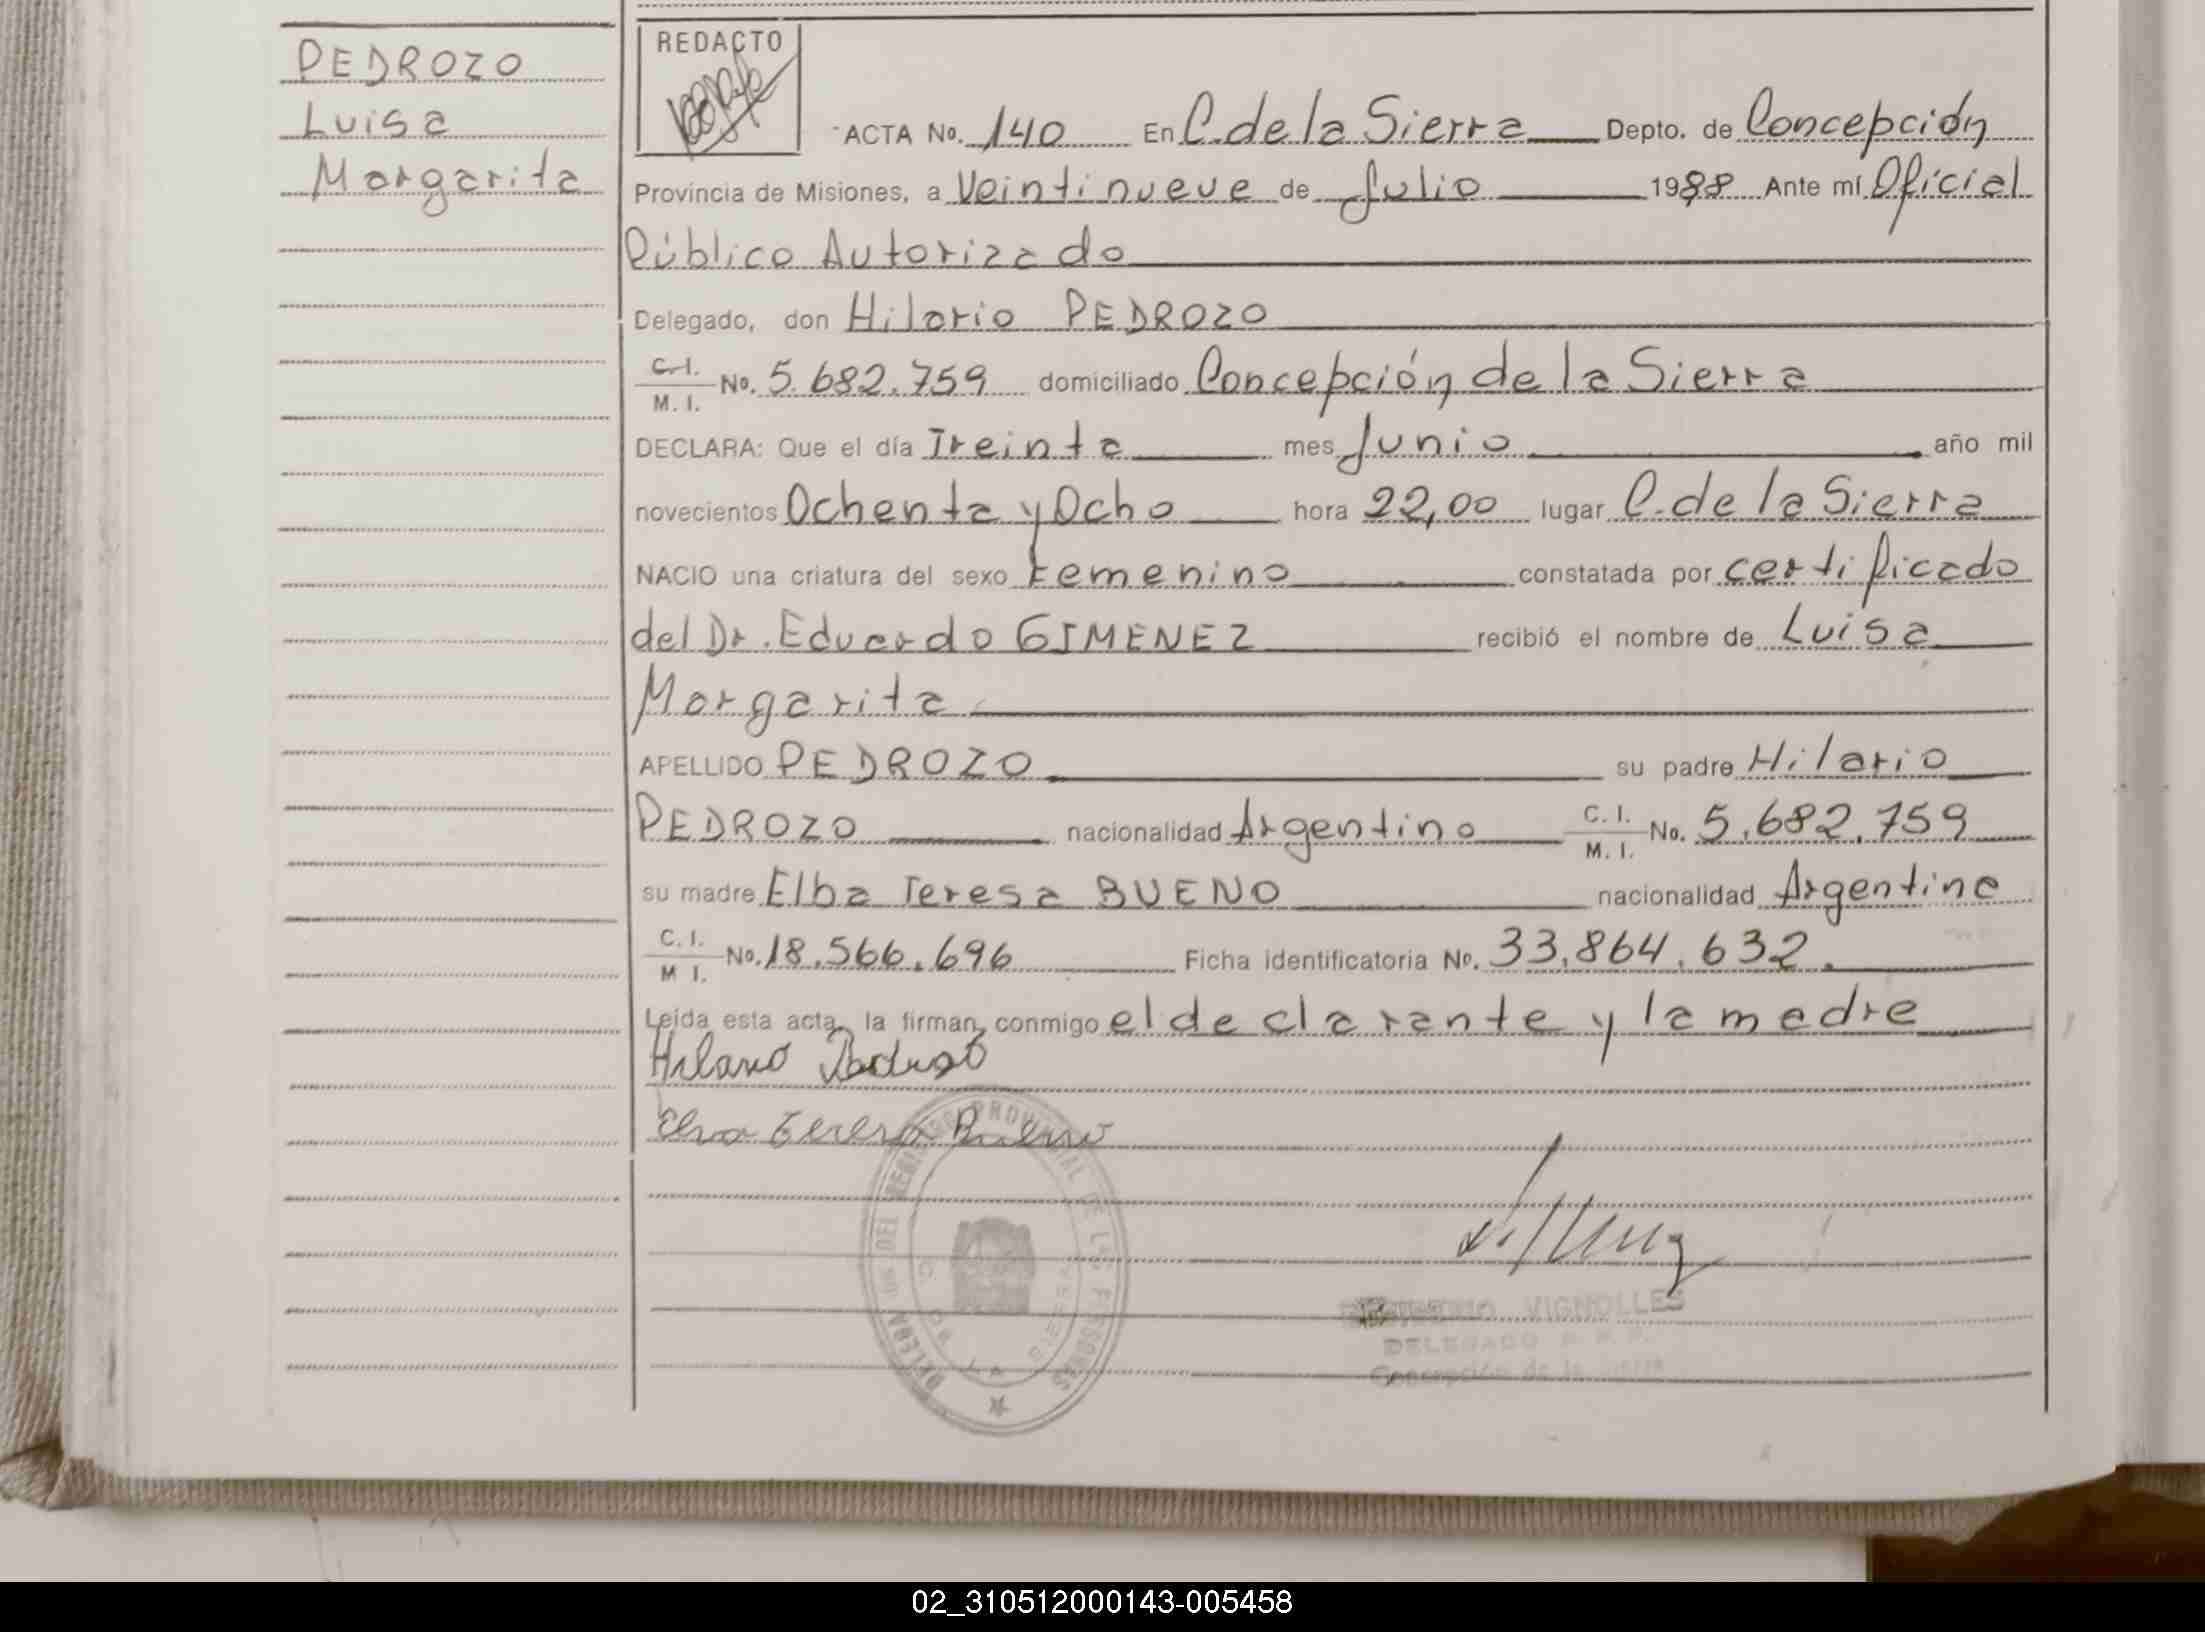 PEDROZO
Luisa
Margarita
REDACTO
ACTA No. 140 En C. de la Sierra Depto. de Concepción
Provincia de Misiones, a Veintinueve de Julio 1988 Ante mí Oficial
Público Autorizado
Delegado, don Hilario PEDROZO
C.I. M. I. No. 5.682.759 domiciliado Concepción de la Sierra
DECLARA: Que el día Treinta mes Junio año mil
novecientos Ochenta y Ocho hora 22,00 lugar C. de la Sierra
NACIO una criatura del sexo Femenino constatada por certificado
del Dr. Eduardo GIMENEZ recibió el nombre de Luisa
Margarita
APELLIDO PEDROZO su padre Hilario
PEDROZO nacionalidad Argentino C. I. M. I. No. 5.682.759
su madre Elba Teresa BUENO nacionalidad Argentina
C. I. M I. No. 18.566.696 Ficha identificatoria No. 33.864.632.
Leída esta acta, la firman, conmigo el declarante y la madre
Hilario Pedrozo
Elva Teresa Bueno
DEL REGISTRO PROVINCIAL DE LAS PERSONAS
C. DE LA SIERRA
VIGNOLLES
DELEGADO R. P. P.
Concepción de la Sierra
02_310512000143-005458